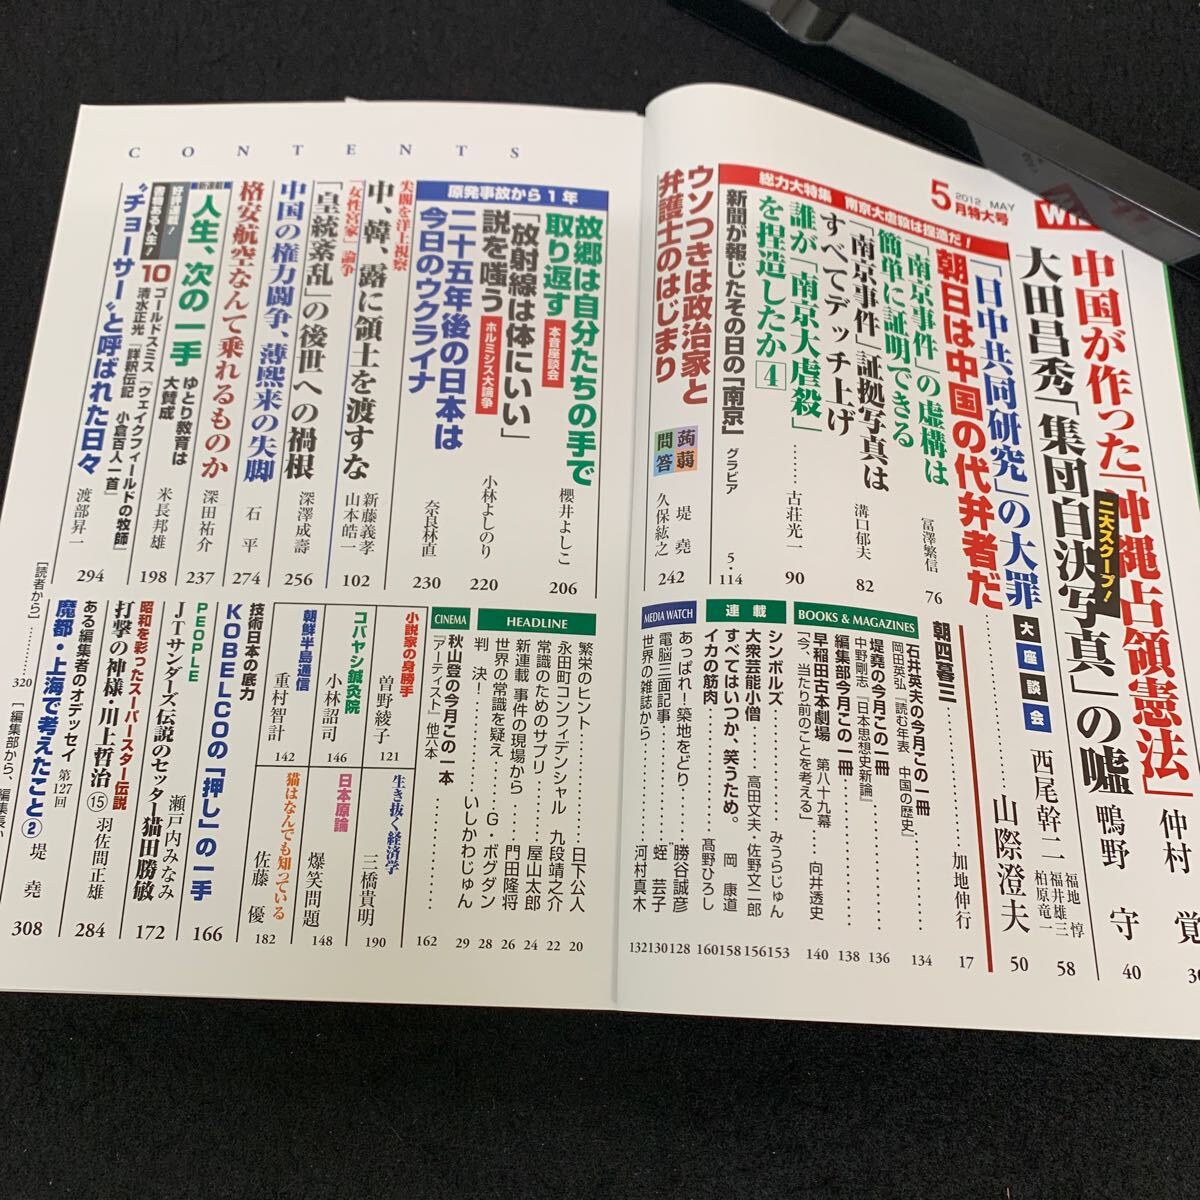 Wi
2012 MAY
5月特大号
中国が作った「沖縄占領憲法」
仲村 覚
30
二大スクープ!
大田昌秀「集団自決写真」の嘘
鴨野 守
40
「日中共同研究」の大罪
大座談会
西尾幹二
福地 惇
福井雄三
柏原竜一
58
朝日は中国の代弁者だ
山際澄夫
50
総力大特集 南京大虐殺は捏造だ!
「南京事件」の虚構は
簡単に証明できる
冨澤繁信
76
「南京事件」証拠写真は
すべてデッチ上げ
溝口郁夫
82
誰が「南京大虐殺」
を捏造したか4
古荘光一
90
新聞が報じたその日の「南京」
グラビア
5・114
ウソつきは政治家と
弁護士のはじまり
蒟蒻問答
堤 堯
久保紘之
242
朝四暮三
加地伸行
17
BOOKS & MAGAZINES
石井英夫の今月この一冊
岡田英弘『読む年表 中国の歴史』
134
堤堯の今月この一冊
中野剛志『日本思想史新論』
136
編集部今月この一冊
138
早稲田古本劇場 第八十九幕
「今、当たり前のことを考える」
向井透史
140
連載
シンボルズ
みうらじゅん
153
大衆芸能小僧
高田文夫・佐野文二郎
156
すべてはいつか、笑うため。
岡 康道
158
イカの筋肉
髙野ひろし
160
MEDIA WATCH
あっぱれ!築地をどり
勝谷誠彦
128
電脳三面記事
蛭 芸子
130
世界の雑誌から
河村真木
132
CONTENTS
原発事故から1年
故郷は自分たちの手で
取り返す
本音座談会
櫻井よしこ
206
「放射線は体にいい」
説を嗤う
ホルミシス大論争
小林よしのり
220
二十五年後の日本は
今日のウクライナ
奈良林直
230
尖閣を洋上視察
中、韓、露に領土を渡すな
新藤義孝
山本皓一
102
「女性宮家」論争
「皇統紊乱」の後世への禍根
深澤成壽
256
中国の権力闘争、薄熙来の失脚
石 平
274
格安航空なんて乗れるものか
深田祐介
237
新連載
人生、次の一手
ゆとり教育は
大賛成
米長邦雄
198
好評連載!
書物ある人生!
10
ゴールドスミス『ウェイクフィールドの牧師』
清水正光『詳釈伝記 小倉百人一首』
“チョーサー”と呼ばれた日々
渡部昇一
294
HEADLINE
繁栄のヒント
日下公人
20
永田町コンフィデンシャル
九段靖之介
22
常識のためのサプリ
屋山太郎
24
新連載 事件の現場から
門田隆将
26
世界の常識を疑え
G・ボグダン
28
判決!
いしかわじゅん
29
CINEMA
秋山登の今月この一本
『アーティスト』他六本
162
小説家の身勝手
曽野綾子
121
コバヤシ鍼灸院
小林詔司
146
朝鮮半島通信
重村智計
142
生き抜く経済学
三橋貴明
190
日本原論
爆笑問題
148
猫はなんでも知っている
佐藤 優
182
技術日本の底力
KOBELCOの「押し」の一手
166
PEOPLE
JTサンダーズ伝説のセッター猫田勝敏
瀬戸内みなみ
172
昭和を彩ったスーパースター伝説
打撃の神様・川上哲治⑮
羽佐間正雄
284
ある編集者のオデッセイ
第127回
魔都・上海で考えたこと②
堤 堯
308
[読者から]
320
[編集部から、編集長